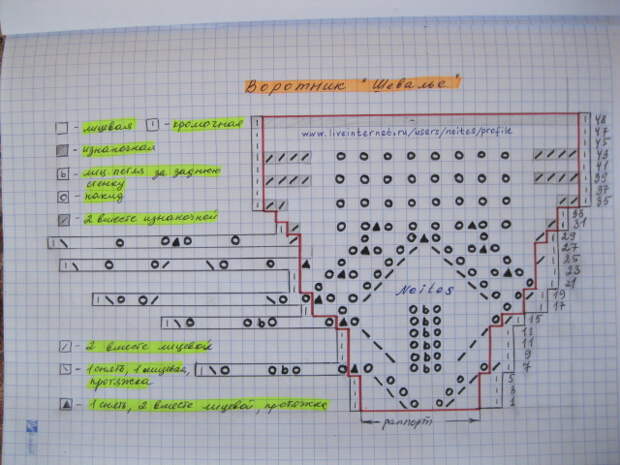 Воротник "Шевалье"
www.liveinternet.ru/users/neitos/profile
- лицевая
- кромочная
- изнаночная
- лиц. петля за заднюю
стенку
- накид
- 2 вместе изнаночной
- 2 вместе лицевой
- 1 снять, 1 лицевая,
протяжка
- 1 снять, 2 вместе лицевой, протяжка
Neitos
раппорт
48
47
45
43
41
39
37
35
33
31
29
27
25
23
21
19
17
15
13
11
9
7
5
3
1